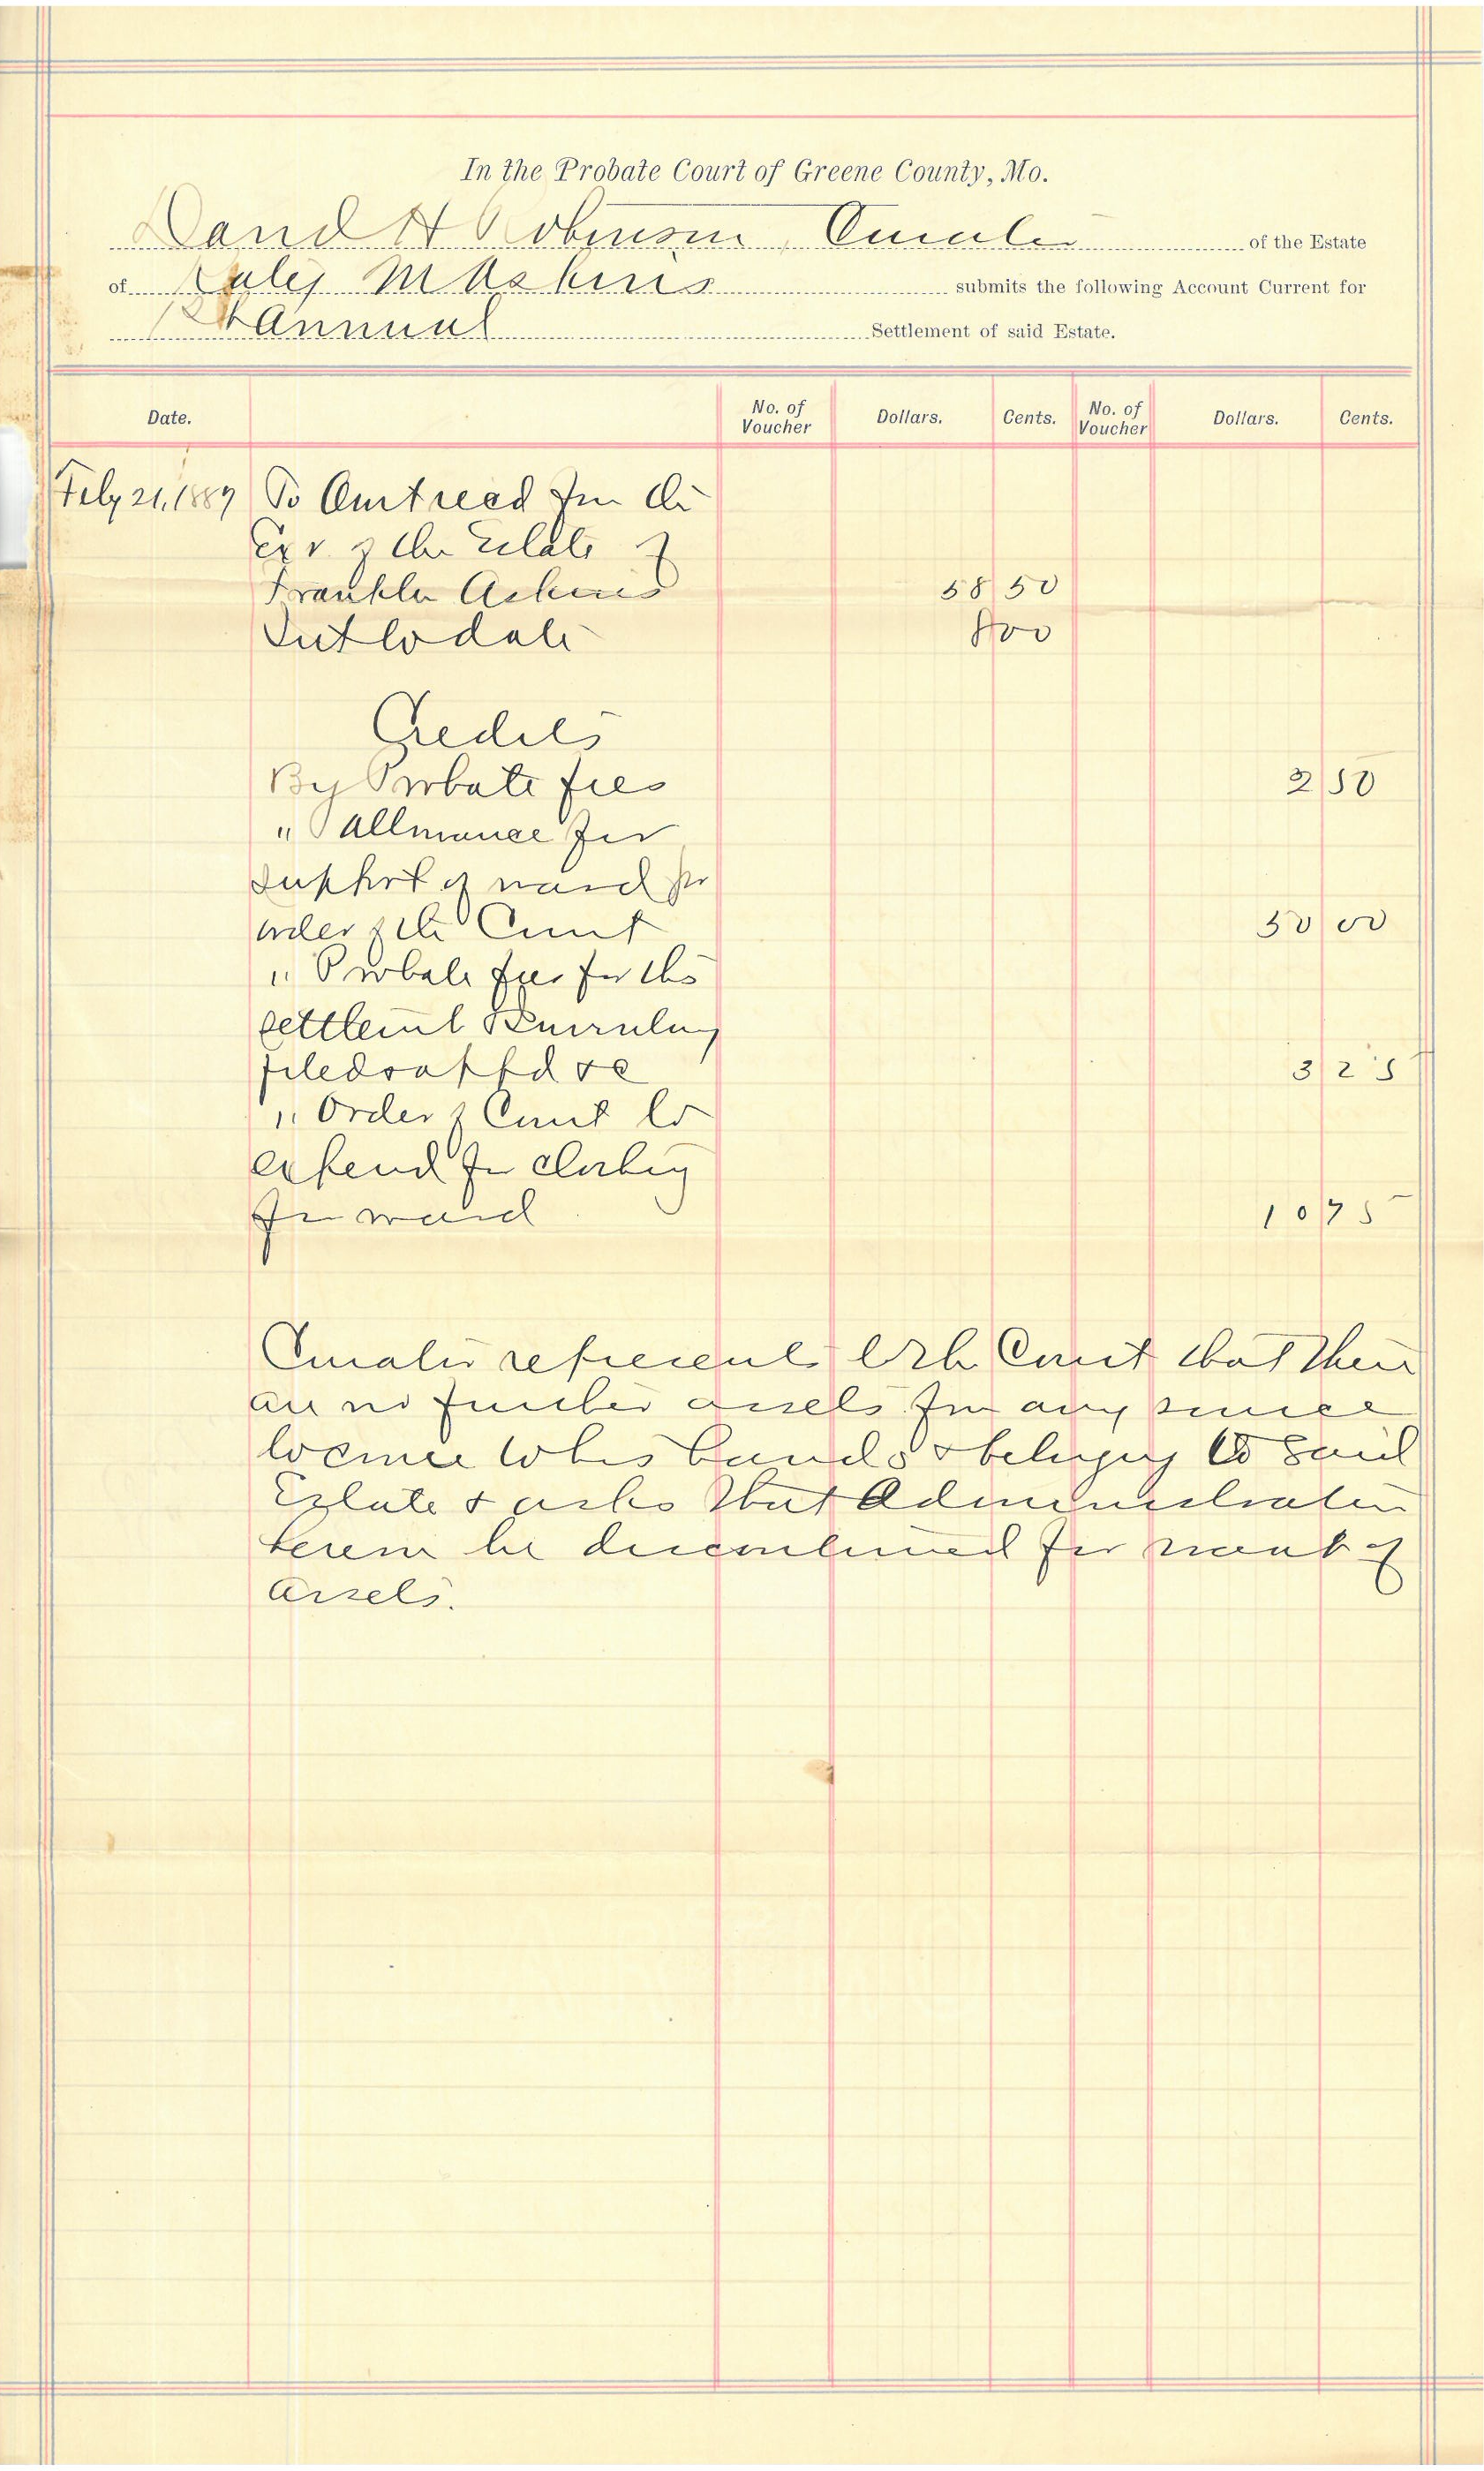 In the Probate Court of Greene County, Mo.
David H Robinson, Curator of the Estate
of M Askins submits the following Account Current for
1st Annual Settlement of said Estate.
Date. No. of Voucher Dollars. Cents. No. of Voucher Dollars. Cents.
Feby 21, 1889 To Amt recd from the
Exr of the Estate of
Franklin Askins 58 50
Int to date 8 00
Credits
By Probate fees 2 50
" Allowance for
support of ward pr
order of the Court 50 00
" Probate fees for this
settlement
filed &c 3 25
" Order of Court to
expend for clothing
for ward 10 75
Curator represents to the Court that there
are no further assets from any source
to come to his hands & belonging to said
Estate & asks that Administration
herein be discontinued for want of
assets.